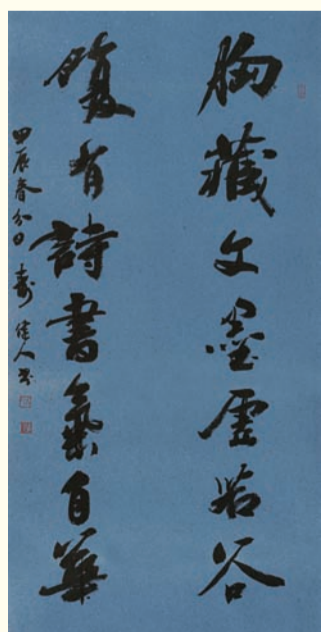 胸藏文墨虛若谷
腹有詩書氣自華
甲辰春分日 壽佳人書